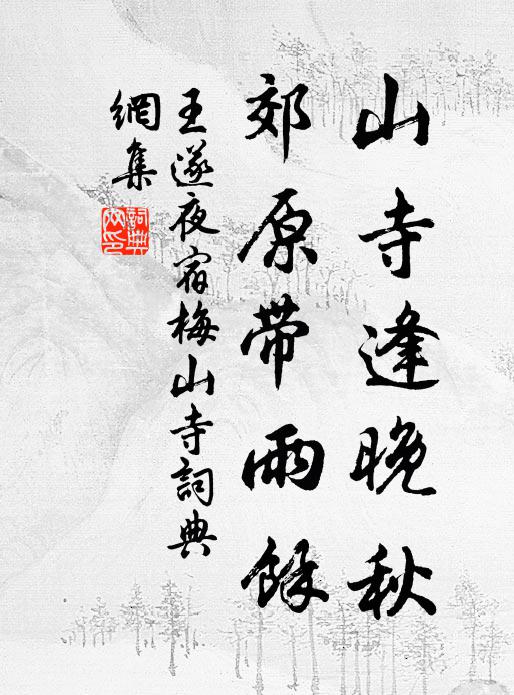 山寺逢晚秋
郊原带雨餘
王遂夜宿梅山寺詞典
網集
詞典網印